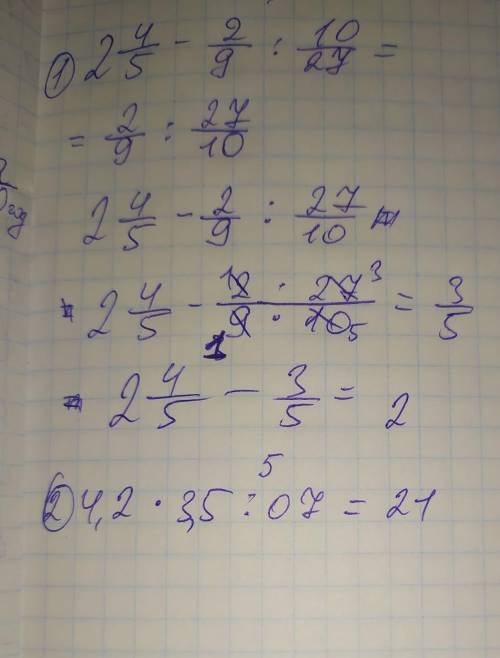 ① 2 4/5 - 2/9 : 10/27 =
= 2/9 : 27/10
2 4/5 - 2/9 : 27/10
2 4/5 - 2 : 27 3 / 1 9 · 10 5 = 3/5
2 4/5 - 3/5 = 2
5
② 4,2 · 3,5 : 07 = 21